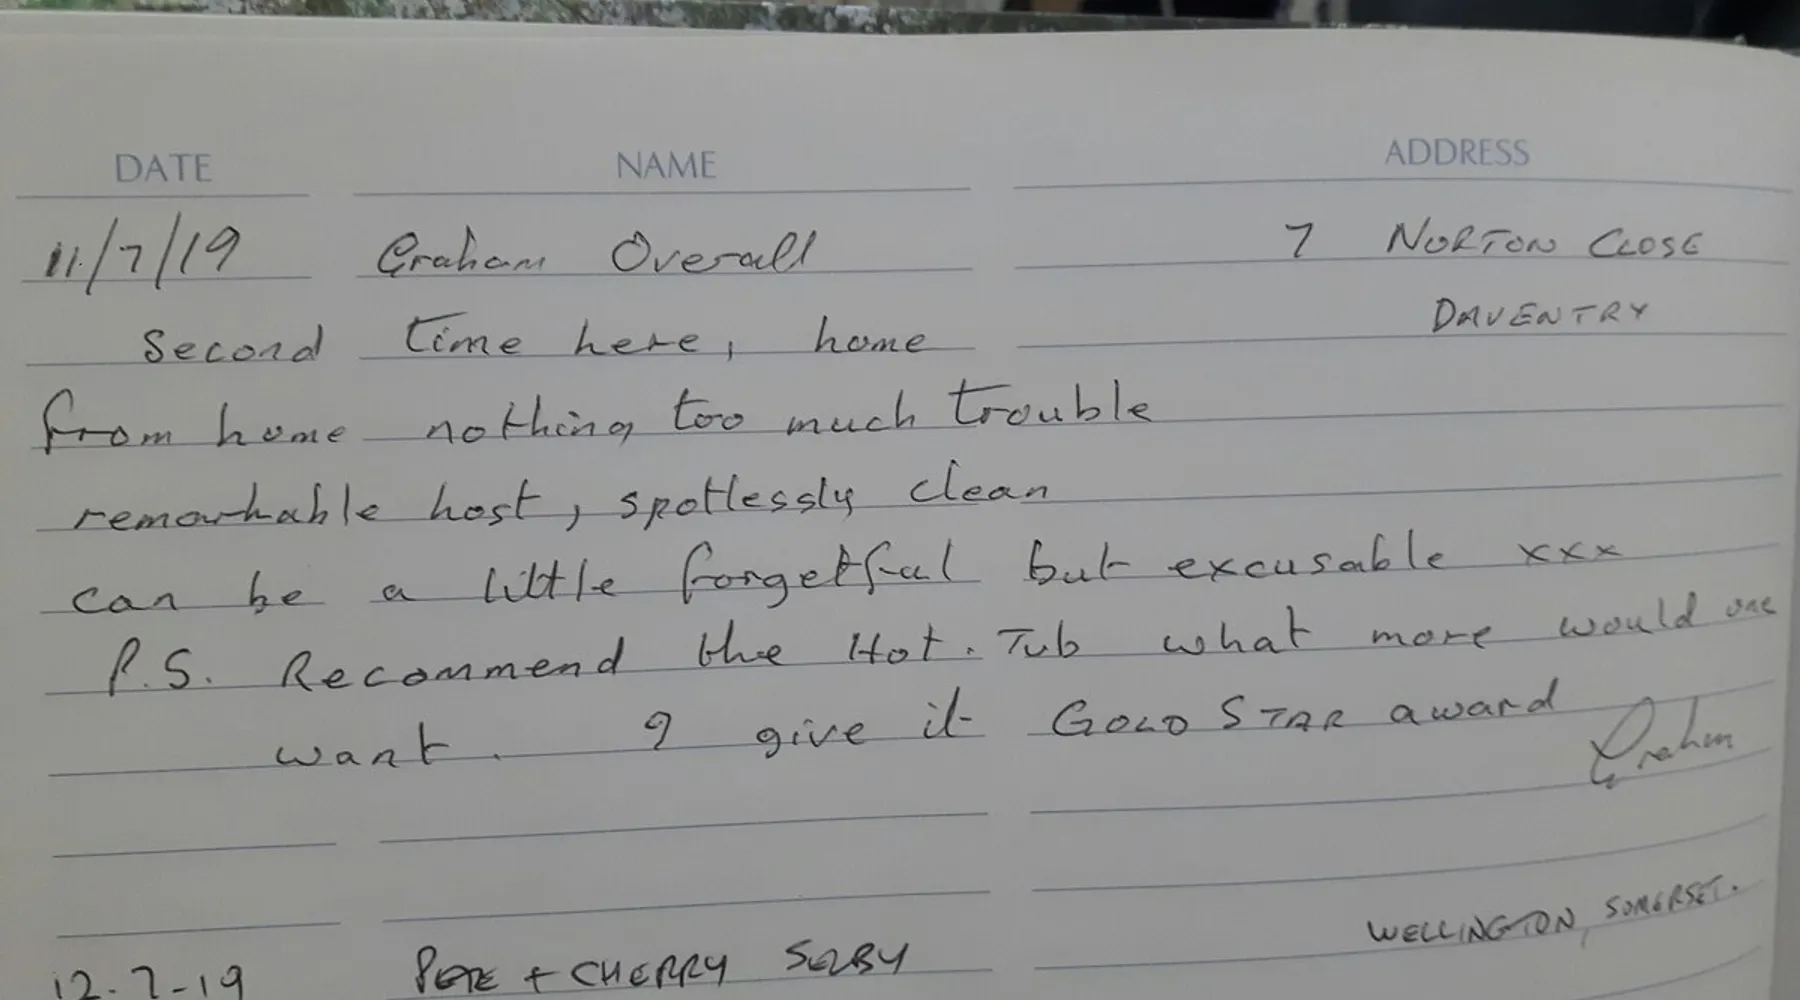 DATE NAME ADDRESS
11/7/19 Graham Overall 7 NORTON CLOSE
DAVENTRY
Second time here, home
from home nothing too much trouble
remarkable host, spotlessly clean
can be a little forgetful but excusable xxx
P.S. Recommend the Hot. Tub what more would one
want. I give it GOLD STAR award
Graham
WELLINGTON, SOMERSET.
12-7-19 PETE + CHERRY SELBY